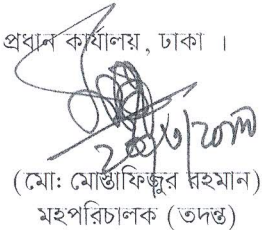 প্রধান কার্যালয়, ঢাকা ।
(মো: মোস্তাফিজুর রহমান)
মহপরিচালক (তদন্ত)